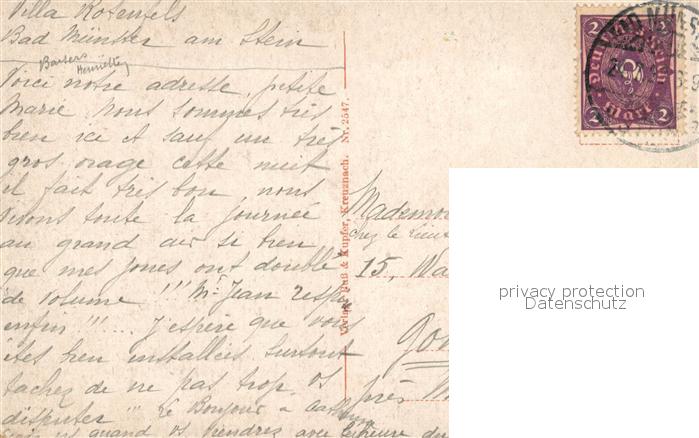 Villa Rosenfels
Bad Münster am Stein
Baisers
Henriette
Voici notre adresse, petite
Marie. Nous sommes très
bien ici et sauf un très
gros orage cette nuit
il fait très bon nous
vivons toute la journée
au grand air si bien
que mes joues ont doublé
de volume !!! Mr Jean respire
enfin !!! .... J'espère que vous
êtes bien installées, surtout
tachez de ne pas trop vs
disputer !!! Le Bonjour à
quand vs viendrez avec
Verlag Buß & Kupfer, Kreuznach. Nr. 2547.
2 2
Deutsches Reich
2
Mark
2 2
Mademoi
chez le
15, Wa
près
privacy protection
Datenschutz